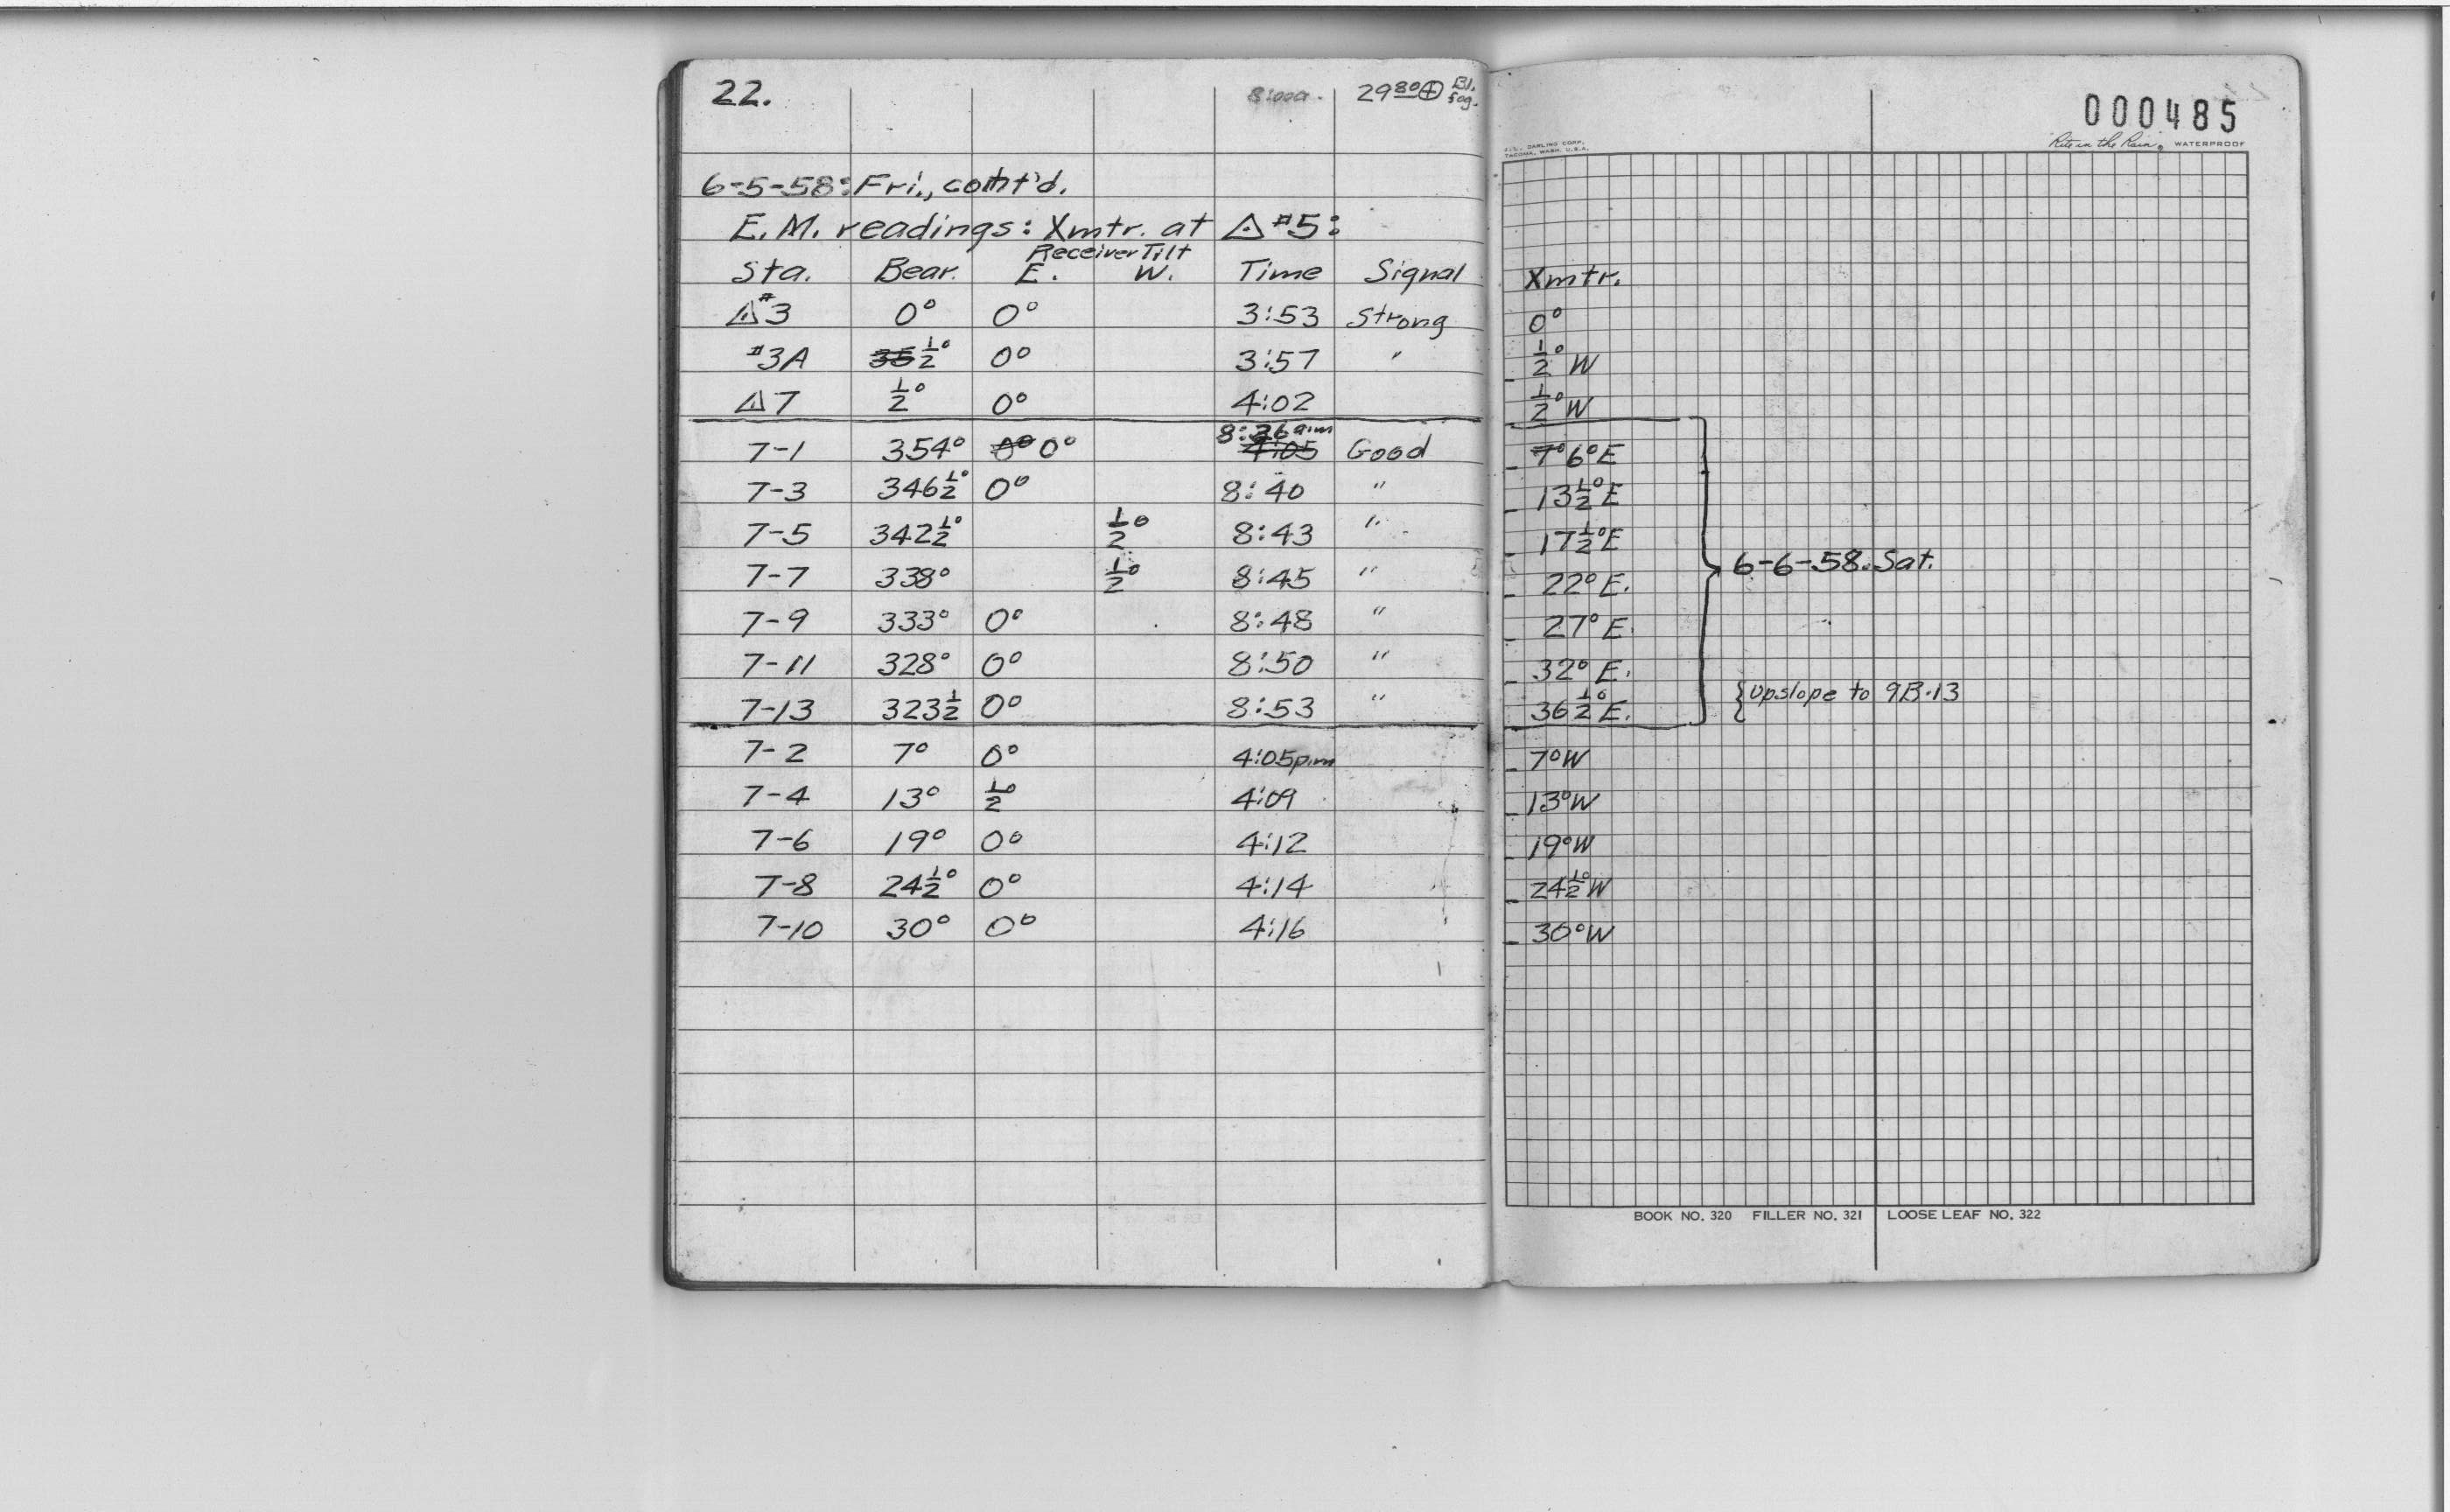 22. 8:00a. 29 80 Bl. fog.
6-5-58: Fri., cont'd.
E.M. readings: Xmtr. at △ #5:
Receiver Tilt
Sta. Bear. E. W. Time Signal Xmtr.
△ #3 0° 0° 3:53 Strong 0°
#3A 35 ½° 0° 3:57 " ½° W
△7 ½° 0° 4:02 ½° W
8:36 a.m
7-1 354° 0° 0° 4:05 Good 7° 6° E
7-3 346½° 0° 8:40 " 13½° E
7-5 342½° ½° 8:43 " 17½° E
7-7 338° ½° 8:45 " 22° E.
7-9 333° 0° 8:48 " 27° E.
7-11 328° 0° 8:50 " 32° E.
7-13 323½ 0° 8:53 " 36½° E.
7-2 7° 0° 4:05 p.m 7° W
7-4 13° ½° 4:09 13° W
7-6 19° 0° 4:12 19° W
7-8 24½° 0° 4:14 24½° W
7-10 30° 0° 4:16 30° W
000485
J.L. DARLING CORP.
TACOMA, WASH. U.S.A.
"Rite in the Rain" WATERPROOF
6-6-58. Sat.
{upslope to 9B-13
BOOK NO. 320 FILLER NO. 321 LOOSE LEAF NO. 322